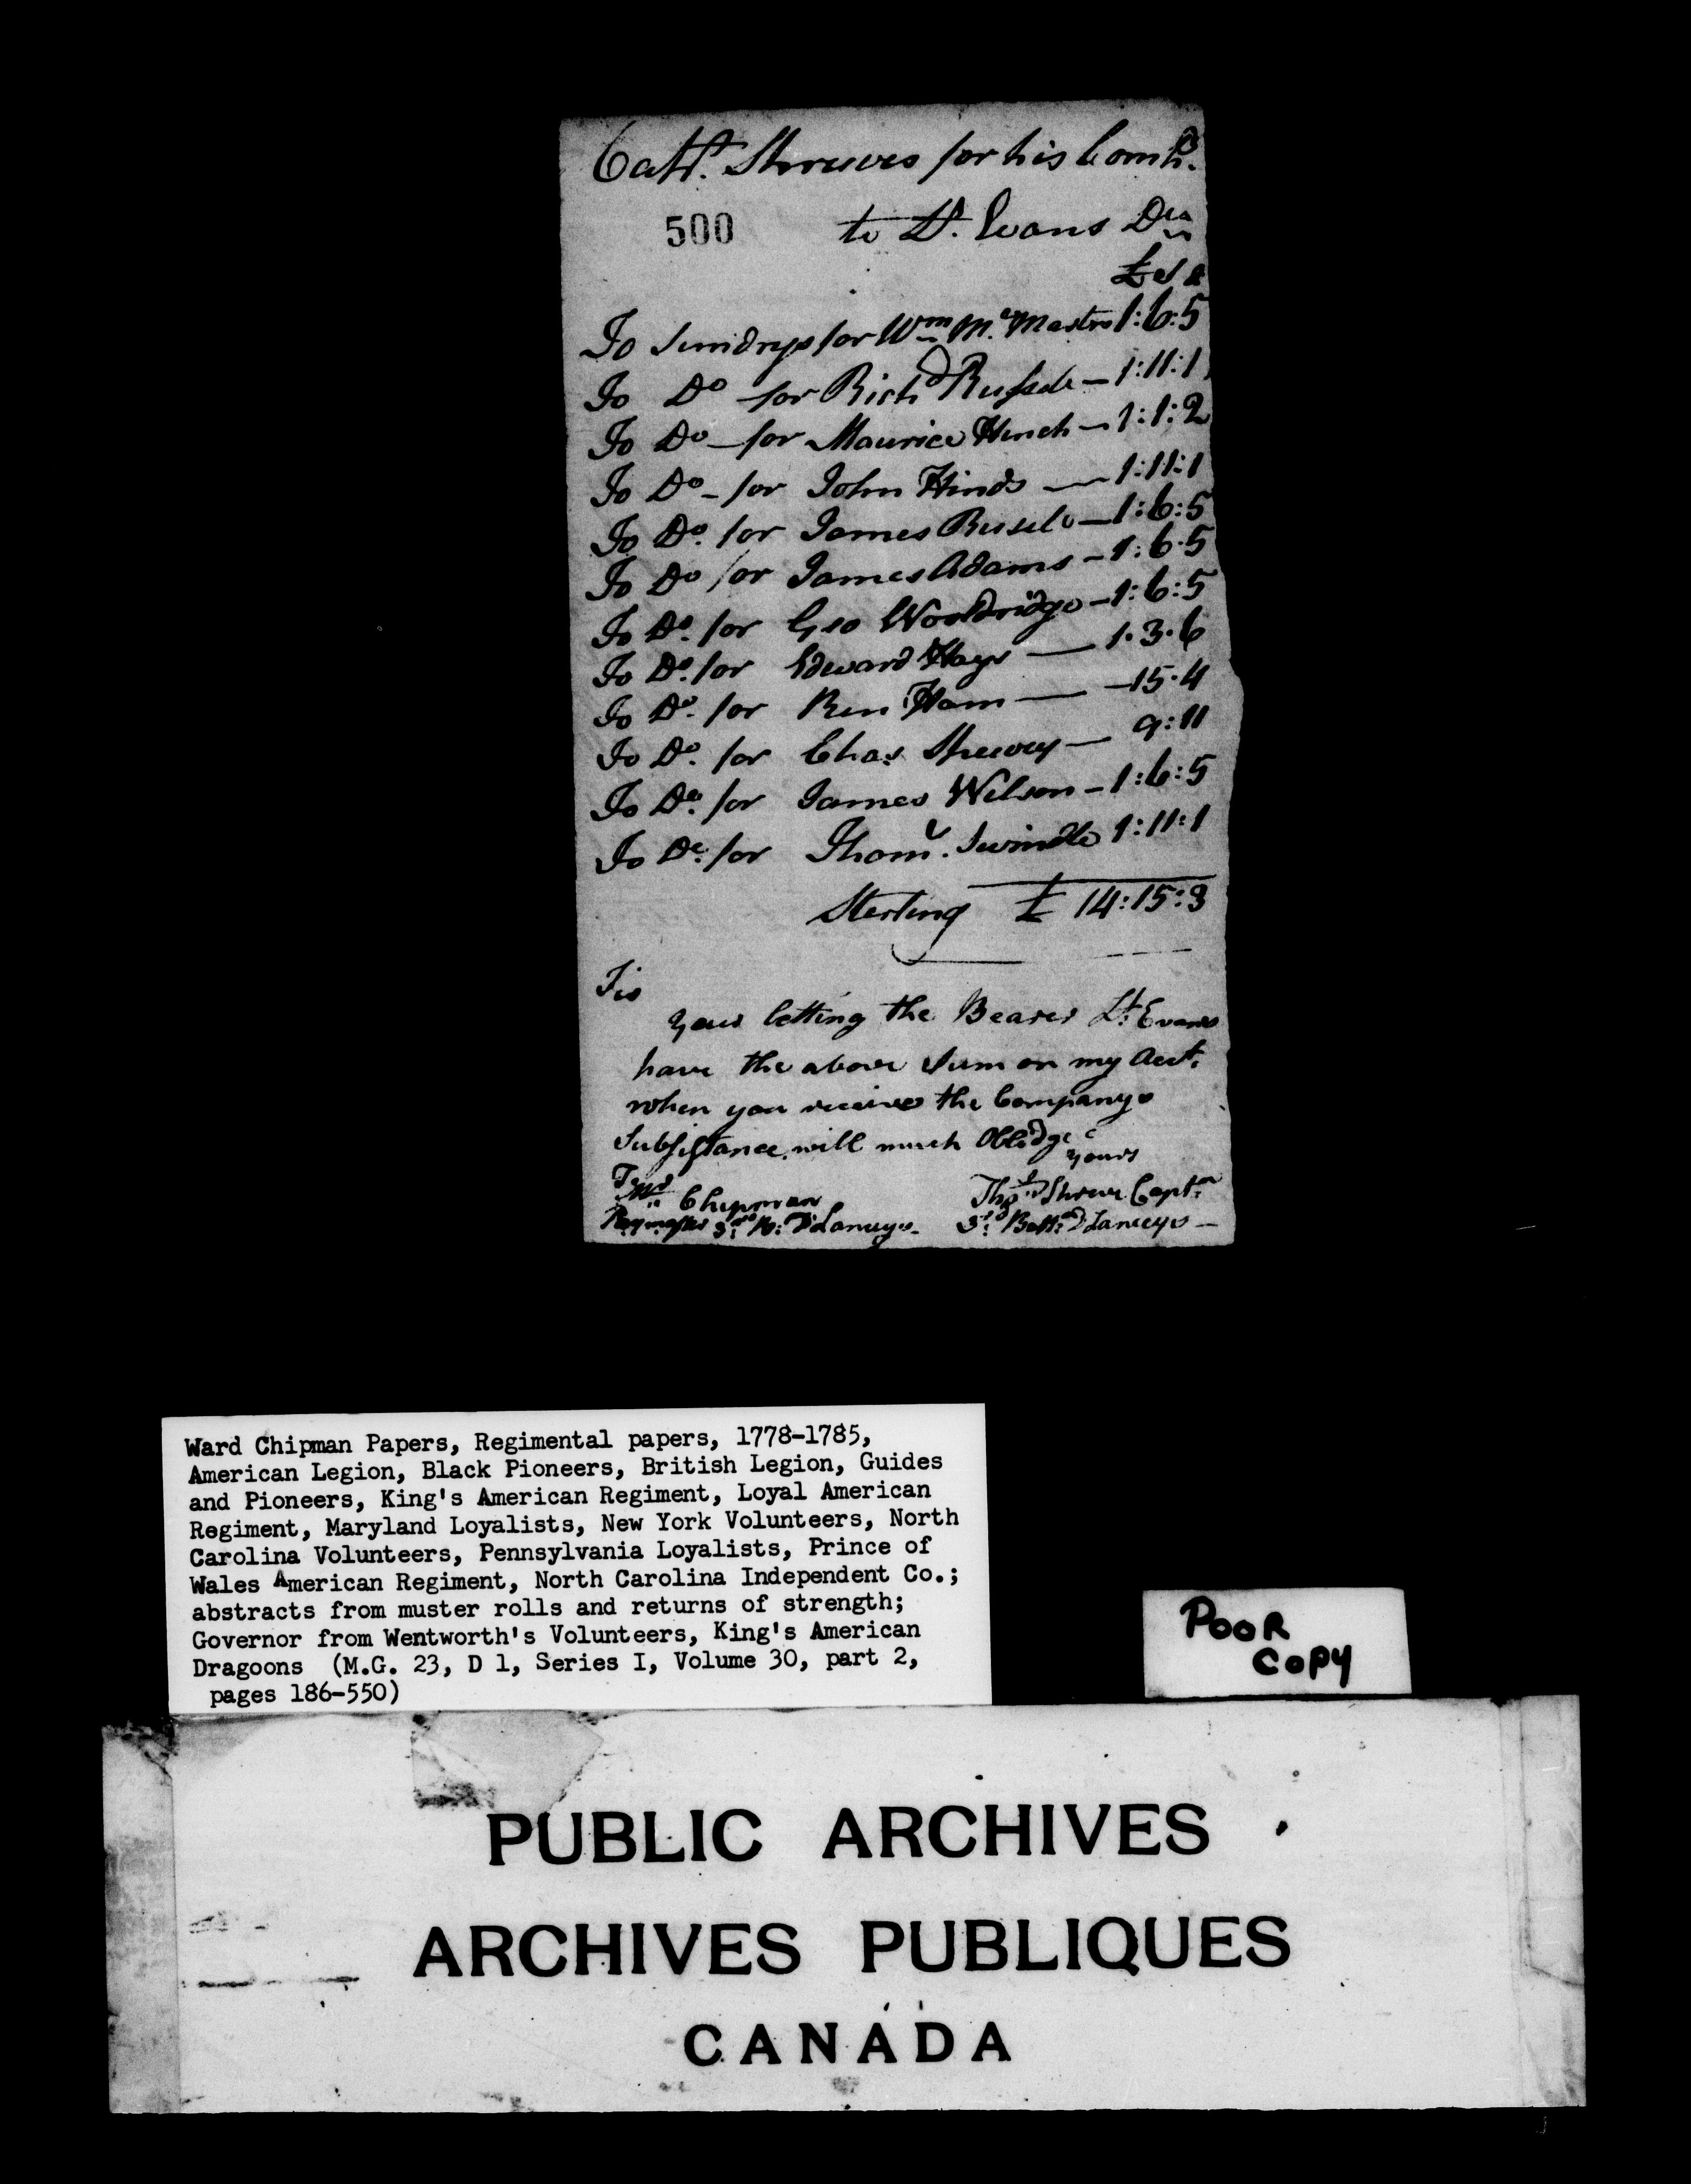 Capt. Shreves for his Comp.
500 to Lt. Evans Dr
£ s d
To Sundrys for Wm Mc Masters 1:6:5
To Do for Richd Russele — 1:11:1
To Do — for Maurice Hinch — 1:1:2
To Do — for John Hinds — 1:11:1
To Do. for James Busele — 1:6:5
To Do for James Adams — 1:6:5
To Do. for Geo Wooldridge — 1:6:5
To Do. for Edward Hays — 1.3.6
To Do. for Ben Ham — 15.4
To Do. for Chas. Shewey — 9:11
To Do. for James Wilson — 1:6:5
To Do. for Thoms. Swindle 1:11:1
Sterling £ 14:15:3
Sir
Your letting the Bearer Lt. Evans
have the above Sum on my Acct.
when you receive the Companys
Subsistance, will much Oblidge
yours
Chipman Thos. Shreve Captn
Paymaster 3rd D'Lanceys — 3d. Battn. D'Lanceys —
Ward Chipman Papers, Regimental papers, 1778-1785,
American Legion, Black Pioneers, British Legion, Guides
and Pioneers, King's American Regiment, Loyal American
Regiment, Maryland Loyalists, New York Volunteers, North
Carolina Volunteers, Pennsylvania Loyalists, Prince of
Wales American Regiment, North Carolina Independent Co.;
abstracts from muster rolls and returns of strength;
Governor from Wentworth's Volunteers, King's American
Dragoons (M.G. 23, D 1, Series I, Volume 30, part 2,
pages 186-550)
POOR
COPY
PUBLIC ARCHIVES
ARCHIVES PUBLIQUES
CANADA